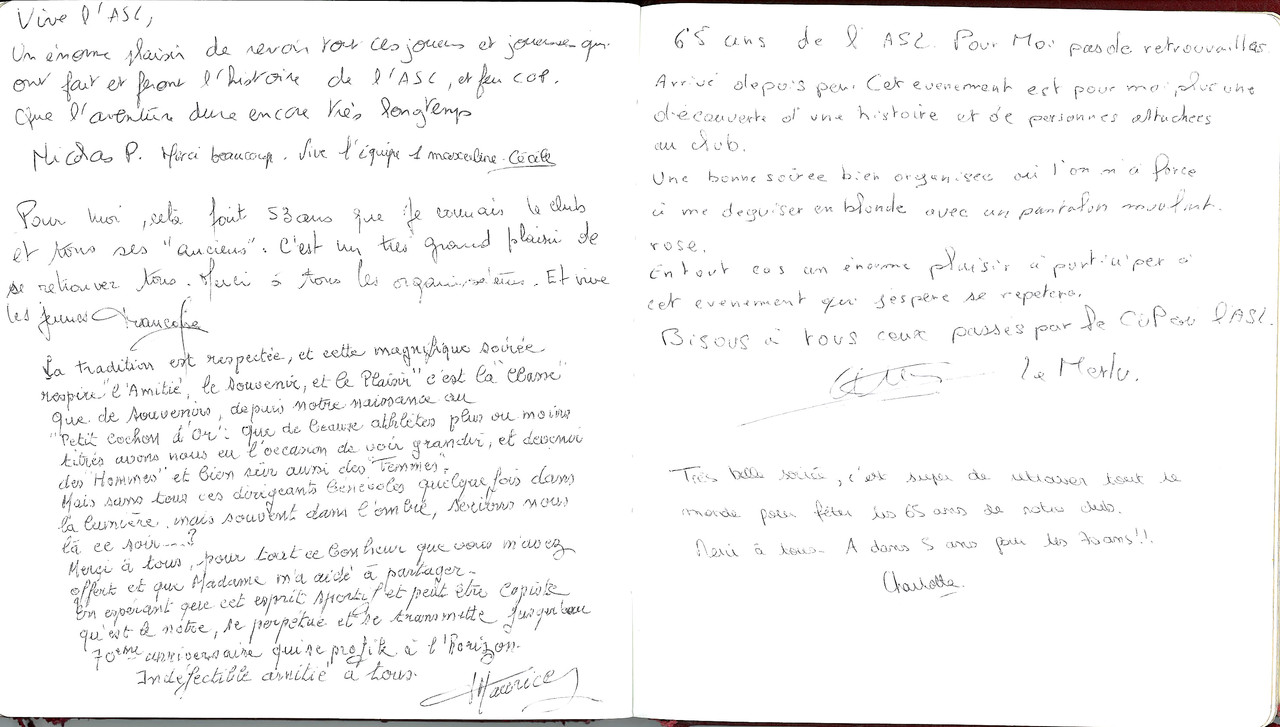 Vive l'ASL,
Un énorme plaisir de revoir tout ces joueurs et joueuses qui
ont fait et feront l'histoire de l'ASL, et feu COP.
Que l'aventure dure encore très longtemps
Nicolas P. Merci beaucoup. Vive l'équipe 1 masculine. Cécile
Pour moi, cela fait 53 ans que je connais le club
et tous ses "anciens". C'est un très grand plaisir de
se retrouver tous. Merci à tous les organisateurs. Et vive
les jeunes Françoise
La tradition est respectée, et cette magnifique soirée
respire "l'Amitié, le souvenir, et le Plaisir" c'est là "Classe"
que de souvenirs, depuis notre naissance au
"Petit Cochon d'Or": que de beaux athlètes plus ou moins
titrés avons nous eu l'occasion de voir grandir, et devenir
des "Hommes" et bien sûr aussi des "Femmes".
Mais sans tous ces dirigeants bénévoles quelque fois dans
la lumière, mais souvent dans l'ombre, serions nous
là ce soir ---?
Merci à tous, pour tout ce bonheur que vous m'avez
offert et que Madame m'a aidé à partager.
En espérant que cet esprit sportif et peut être Copiste
qu'est le nôtre, se perpétue et se transmette jusqu'au
70ème anniversaire qui se profile à l'Horizon.
Indéfectible amitié à tous.
Maurice
65 ans de l'ASL. Pour Moi pas de retrouvailles.
Arrivé depuis peu. Cet evenement est pour moi plus une
découverte d'une histoire et de personnes attachees
au club.
Une bonne soirée bien organisee où l'on m'a forcé
à me deguiser en blonde avec un pantalon moulant.
rose.
En tout cas un énorme plaisir à participer à
cet evenement qui j'espère se repetera.
Bisous à tous ceux passés par le COP ou l'ASL.
le Merlu.
Très belle soirée, c'est super de retrouver tout le
monde pour fêter les 65 ans de notre club.
Merci à tous. A dans 5 ans pour les 70 ans!!.
Charlotte.